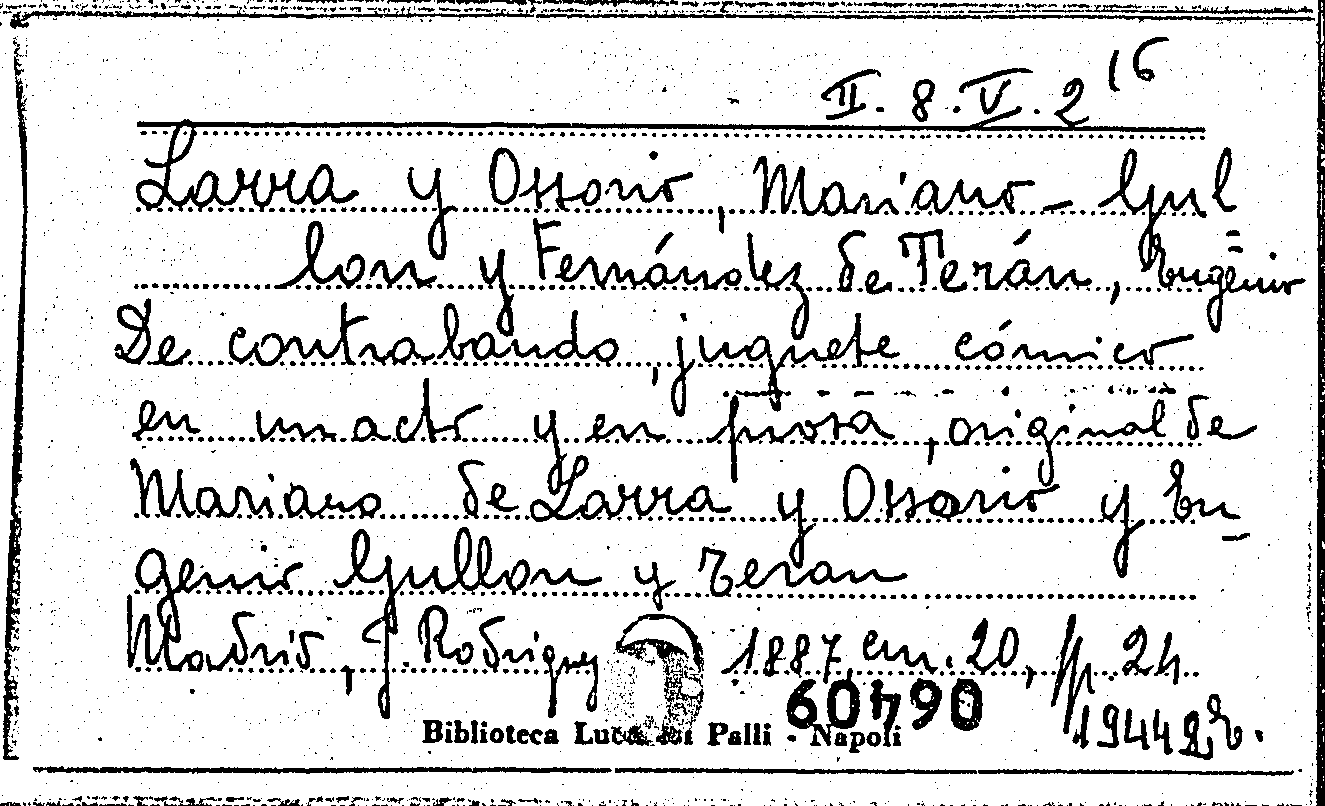 II. 8. V. 2 16
Larra y Ossorio, Mariano - Gul=
lon y Fernández de Terán, Eugenio
De contrabando, juguete cómico
en un acto y en prosa, original de
Mariano de Larra y Ossorio y Eu-
genio Gullon y Teran
Madrid, J. Rodriguez 1887, cm. 20, pp. 24
60490
Biblioteca Lucchesi Palli - Napoli